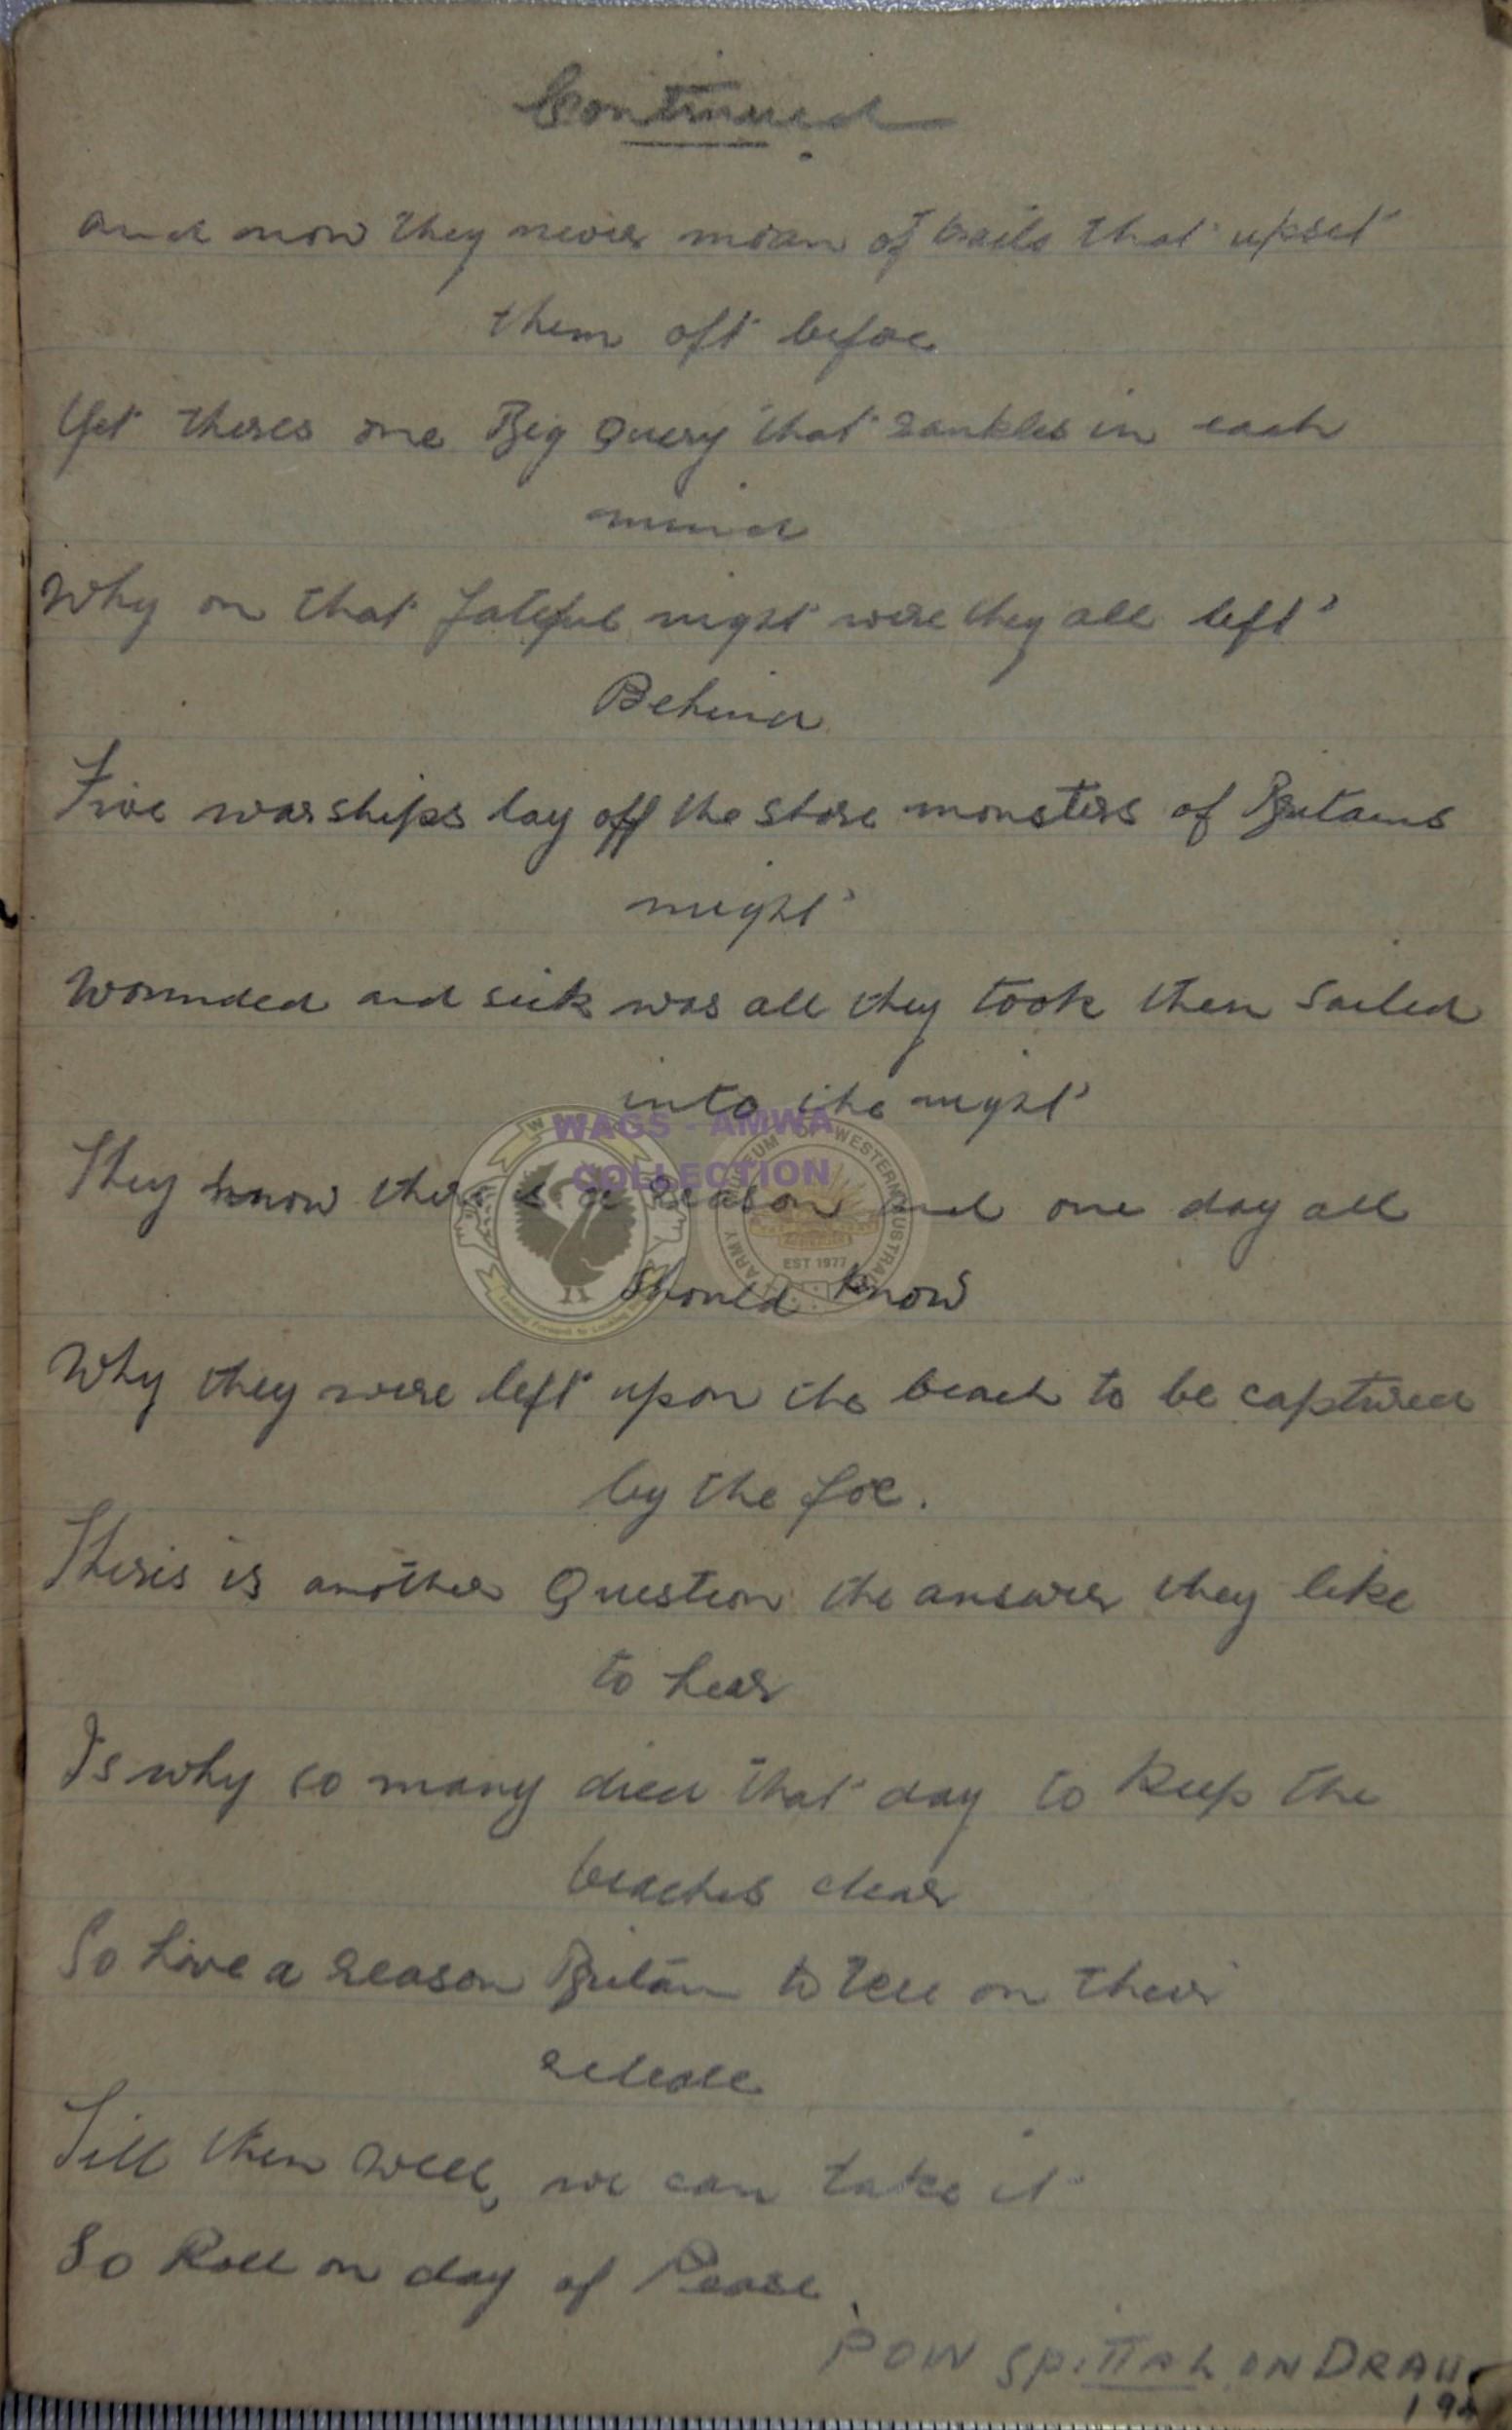 Continued
and now they never moan of trails that upset
them oft before
Yet theres one Big Query that rankles in each
mind
Why on that fateful night were they all left
Behind
Five warships lay off the shore monsters of Britains
might
Wounded and sick was all they took then sailed
into the night
WAGS - AMWA
COLLECTION
They know there is a reason and one day all
should know
EST 1977
Why they were left upon the beach to be captured
by the foe.
Theres is another Question the answer they like
to hear
Is why so many died that day to keep the
beaches clear
So have a reason Britain to tell on their
release
Till then well, we can take it
So Roll on day of Pease.
POW SPITTAL ON DRAU